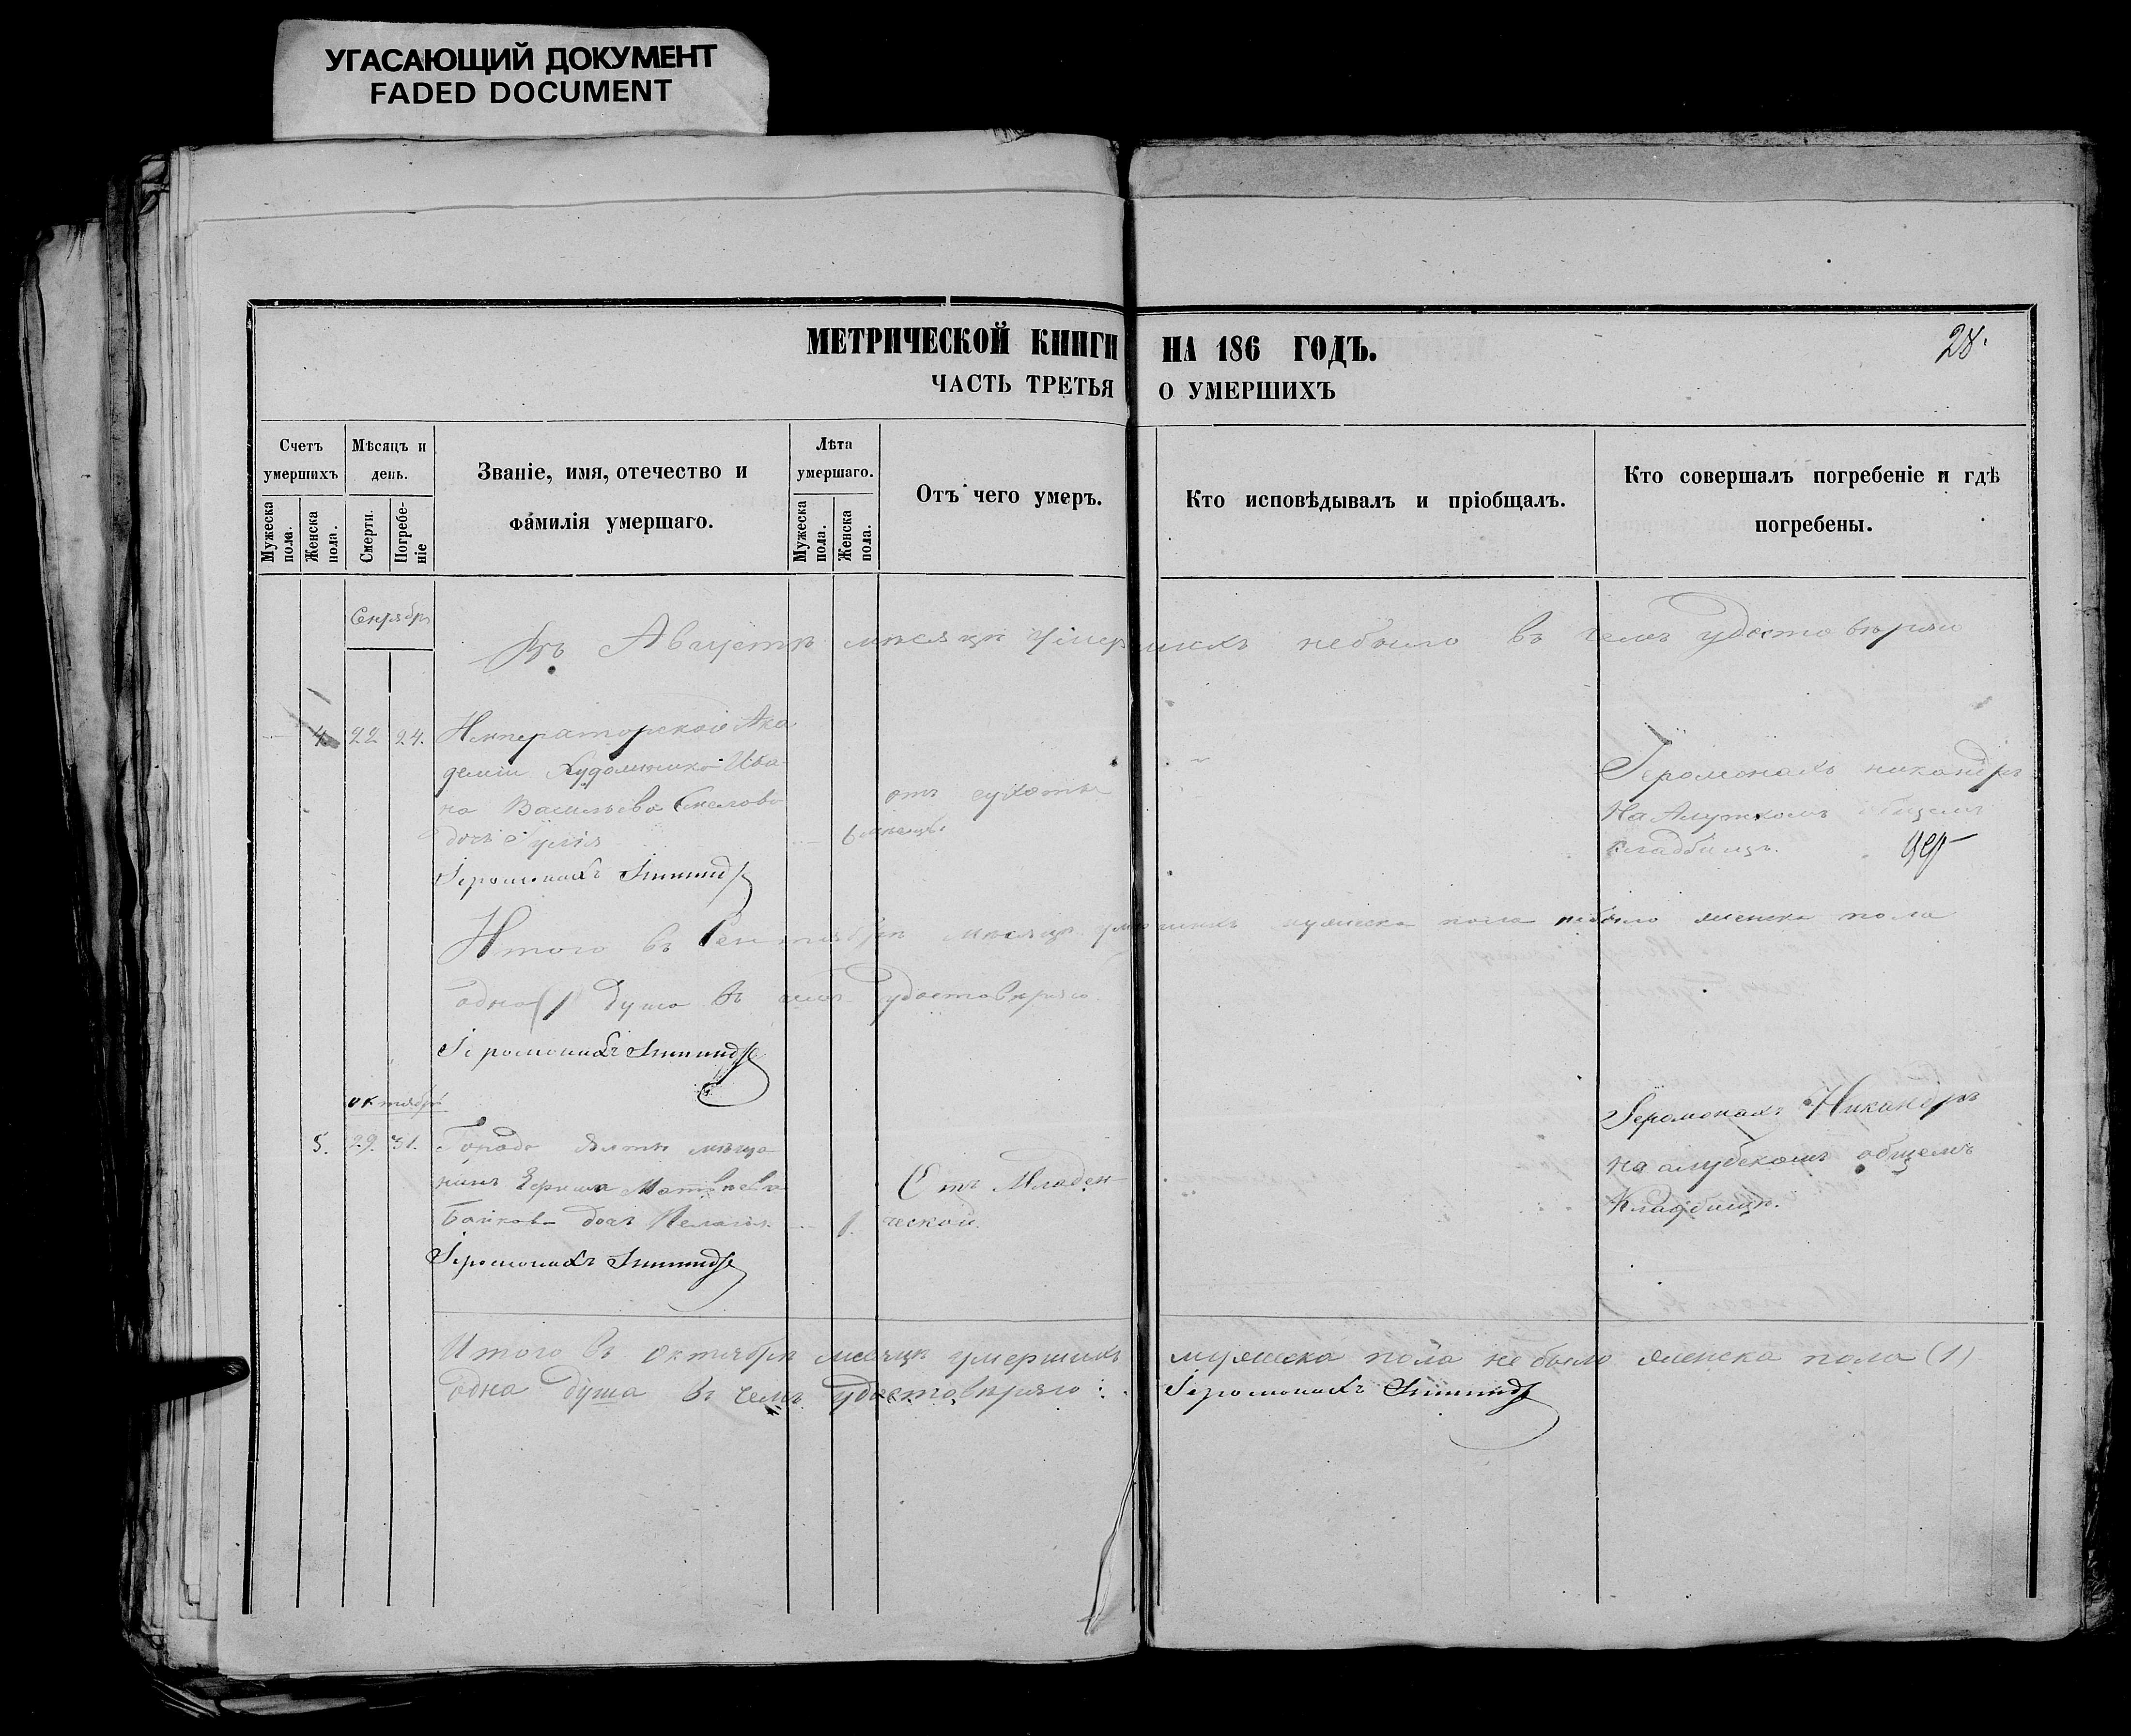 УГАСАЮЩИЙ ДОКУМЕНТ
FADED DOCUMENT
МЕТРИЧЕСКОЙ КНИГИ НА 186 ГОДЪ.
28.
ЧАСТЬ ТРЕТЬЯ О УМЕРШИХЪ
Счетъ умершихъ
Мужеска пола.
Женска пола.
Мѣсяцъ и день.
Смерти.
Погребеніе
Званіе, имя, отечество и фамилія умершаго.
Лѣта умершаго.
Мужеска пола.
Женска пола.
Отъ чего умеръ.
Кто исповѣдывалъ и пріобщалъ.
Кто совершалъ погребеніе и гдѣ погребены.
Сентябрь
Въ Августѣ мѣсяцѣ умершихъ небыло въ чемъ удостовѣряю
4. 22 24.
Императорской Ака
деміи Художника Ива
на Васильева
дочь Юлія
6 мѣсец.
отъ сухоты
Іеромонахъ никандръ
На общемъ
кладбищѣ.
Іеромонахъ
Итого въ Сентябрѣ мѣсяцѣ умершихъ мужеска пола небыло женска пола
одна (1 душа въ чемъ удостовѣряю
Іеромонахъ
октябрь
5. 29. 31.
Города Ялты мѣща
нинъ Матвѣева
Байкова дочь Пелагія
1.
Отъ Младен
ческой.
Іеромонахъ Никандръ
на общемъ
Кладбищѣ.
Іеромонахъ
Итого въ Октябрѣ мѣсяцѣ умершихъ мужеска пола не было женска пола (1)
одна душа въ чемъ удостовѣряю: Іеромонахъ